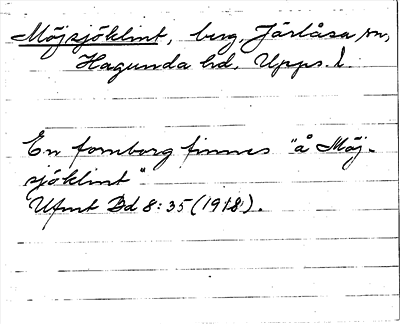 Möjsjöklint, berg, Järlåsa sn,
Hagunda hd, Upps. l.
En fornborg finnes "å Möj-
sjöklint"
Ufmt Bd 8:35 (1918).